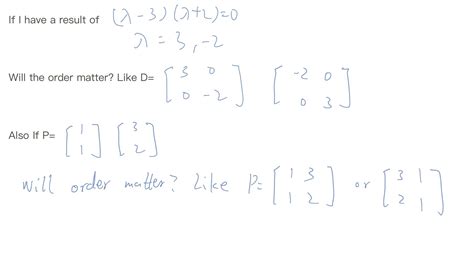 If I have a result of (λ-3)(λ+2)=0
λ = 3, -2
Will the order matter? Like D= [3 0 0 -2] [-2 0 0 3]
Also If P= [1 1] [3 2]
Will order matter? Like P= [1 3 1 2] or [3 1 2 1]